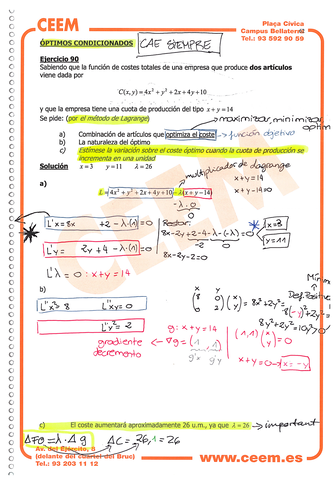 CEEM
Plaça Cívica
Campus Bellaterra
Tel.: 93 592 90 59
ÓPTIMOS CONDICIONADOS CAE SIEMPRE
Ejercicio 90
Sabiendo que la función de costes totales de una empresa que produce dos artículos
viene dada por
C(x, y) = 4x² + y² + 2x + 4y + 10
y que la empresa tiene una cuota de producción del tipo x + y = 14 maximizar, minimizar
Se pide: (por el método de Lagrange)
a) Combinación de artículos que optimiza el coste → función objetivo
b) La naturaleza del óptimo
c) Estímese la variación sobre el coste óptimo cuando la cuota de producción se
incrementa en una unidad
Solución x = 3 y = 11 λ = 26
multiplicador de Lagrange
x+y=14
a)
L = (4x² + y² + 2x + 4y + 10) − λ(x + y − 14)
x+y-14=0
L'x = 8x +2 - λ·(1) = 0
Restar:
8x-2y+2-4-λ-(-λ)=0
x=3
y=11
L'y = 2y +4 - λ·(1) = 0
8x-2y-2=0
L'λ = 0 : x+y = 14
b)
L''x² = 8 L''xy = 0
L''y² = 2
g: x+y=14
gradiente ← ∇g = (1, 1)
decremento g'x g'y
(1,1) (x y) = 0
x+y=0 → x=-y
c) El coste aumentará aproximadamente 26 u.m., ya que λ = 26 → important
ΔFO = λ·Δg ΔC = 26·1 = 26
Av. del Ejército, 8
(delante del cuartel del Bruc)
Tel.: 93 203 11 12
www.ceem.es